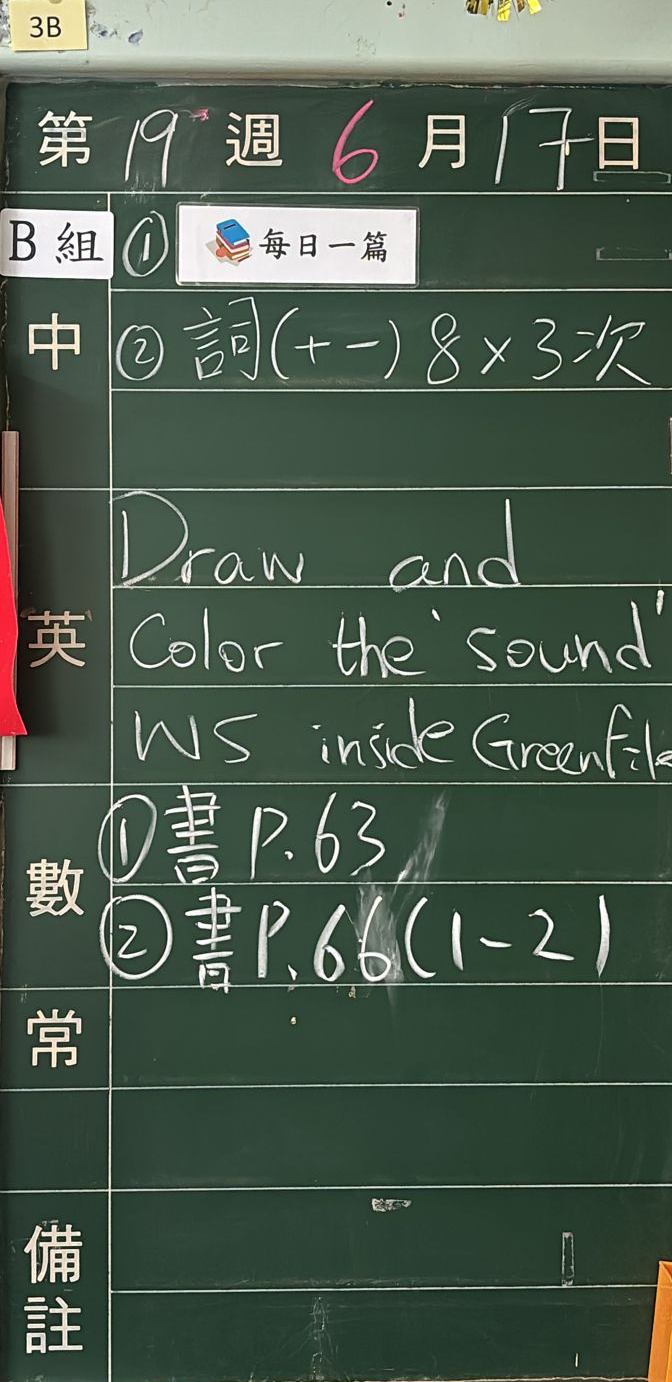 3B
第 19 週 6 月 17 日
B 組 ① 每日一篇
中 ② 詞(十一) 8 × 3次
Draw and
英 Color the 'sound'
WS inside Green File
① 書 P. 63
數
② 書 P. 66 (1-2)
常
備
註